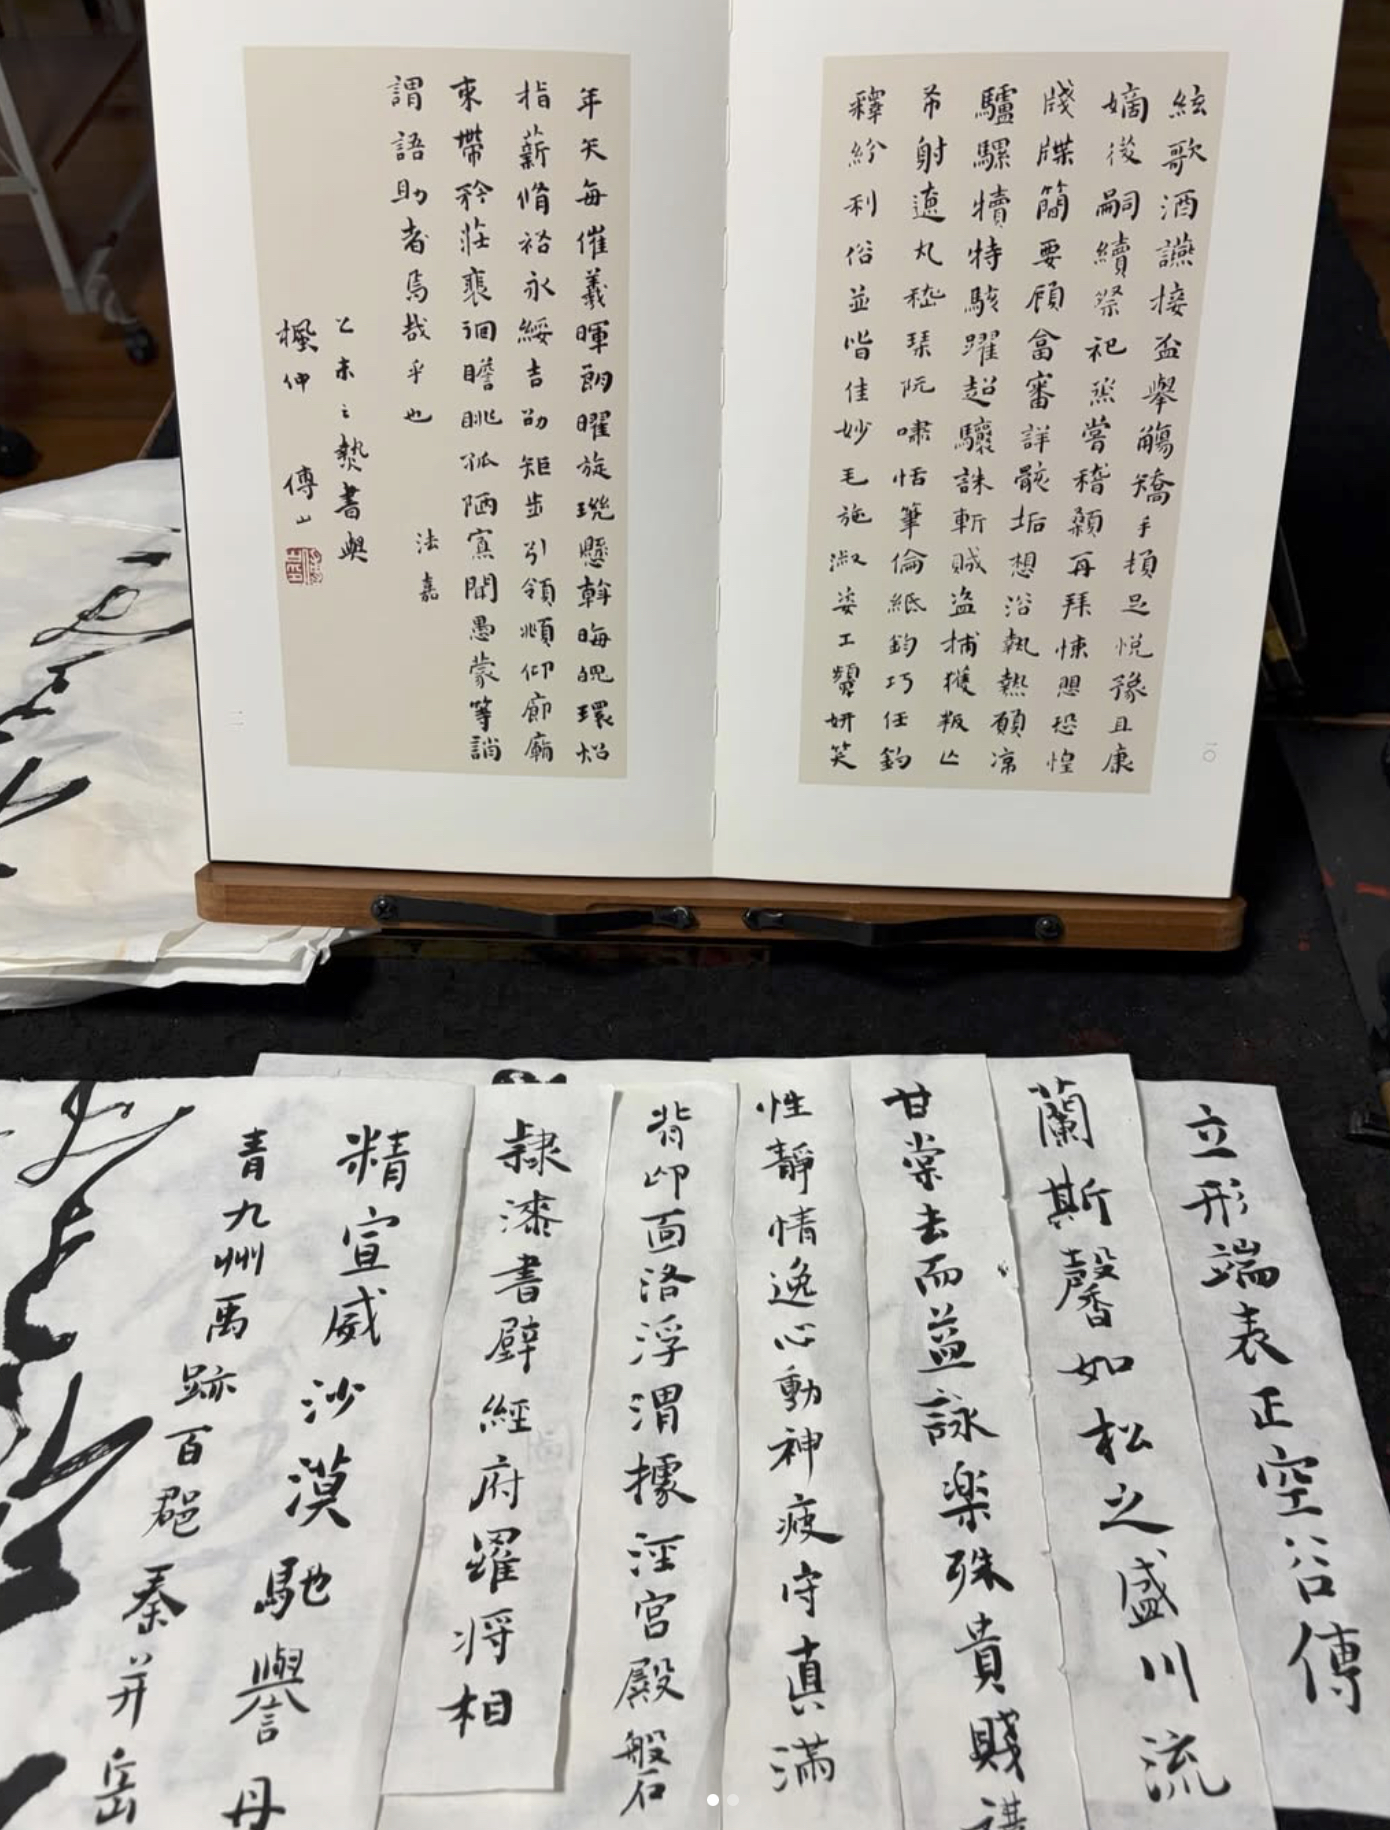 絃歌酒讌接盃舉觴矯手頓足悅豫且康
嫡後嗣續祭祀烝嘗稽顙再拜悚思恐惶
牋牒簡要顧畣審詳骸垢想浴執熱願凉
驢騾犢特駭躍超驤誅斬賊盜捕獲叛亡
布射遼丸嵇琴阮嘯恬筆倫紙鈞巧任鈞
釋紛利俗並皆佳妙毛施淑姿工顰妍笑
一〇
年矢每催羲暉朗曜旋璣懸斡晦魄環炤
指薪脩祐永綏吉劭矩步引領頫仰廊廟
束帶矜莊裵徊瞻眺孤陋寡聞愚蒙等誚
謂語助者焉哉乎也
法嘉
乙未之熱書與
楓仲 傅山
一一
立形端表正空谷傳
蘭斯馨如松之盛川流
甘棠去而益詠樂殊貴賤禮
性靜情逸心動神疲守真滿
背邙面洛浮渭據涇宮殿磐
隸漆書壁經府羅將相
精宣威沙漠馳譽丹
青九州禹跡百郡秦并岳